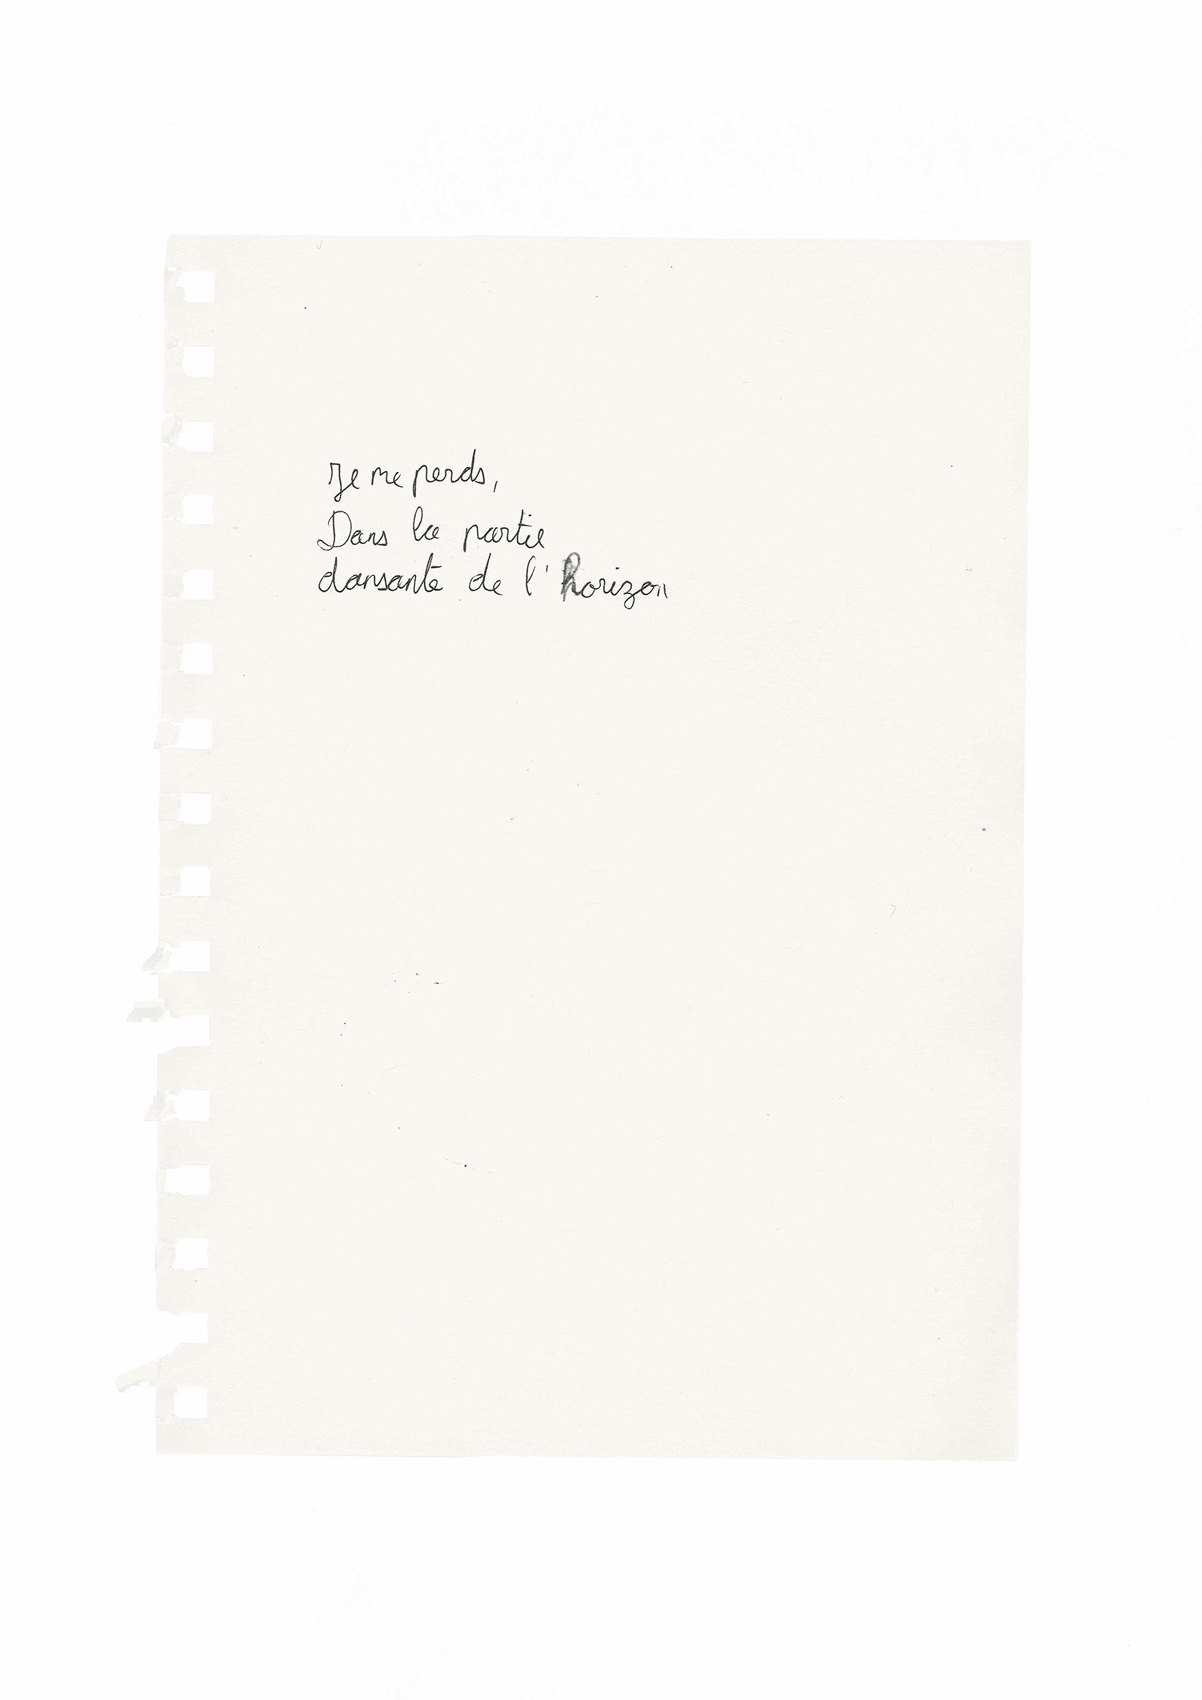 Je me perds,
Dans la partie
dansante de l'horizon